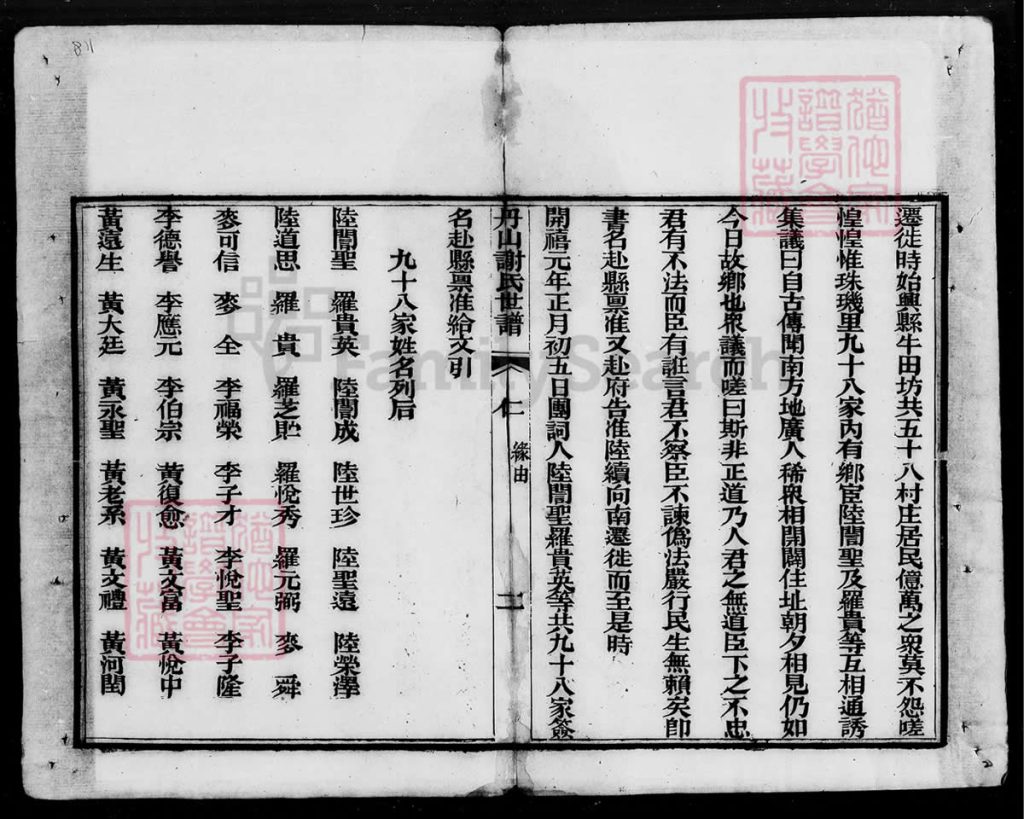 遷徙時始興縣牛田坊共五十八村庄居民億萬之衆莫不怨嗟
惶惶惟珠璣里九十八家內有鄉宦陸誾聖及羅貴等互相通誘
集議曰自古傳聞南方地廣人稀衆相開闢住址朝夕相見仍如
今日故鄉也衆議而嗟曰斯非正道乃人君之無道臣下之不忠
君有不法而臣有誑言君不察臣不諫僞法嚴行民生無賴矣卽
書名赴縣票准又赴府告准陸續向南遷徙而至是時
開禧元年正月初五日團詞人陸誾聖羅貴英等共九十八家簽
丹山謝氏世譜 仁 緣由 二
名赴縣票准給文引
九十八家姓名列后
陸誾聖 羅貴英 陸誾成 陸世珍 陸聖遠 陸榮澤
陸道思 羅 貴 羅芝貯 羅悅秀 羅元弼 麥 舜
麥可信 麥 全 李福榮 李子才 李悅聖 李子隆
李德譽 李應元 李伯宗 黃復愈 黃文富 黃悅中
黃遠生 黃大廷 黃永聖 黃老系 黃文禮 黃河閏
FamilySearch
811